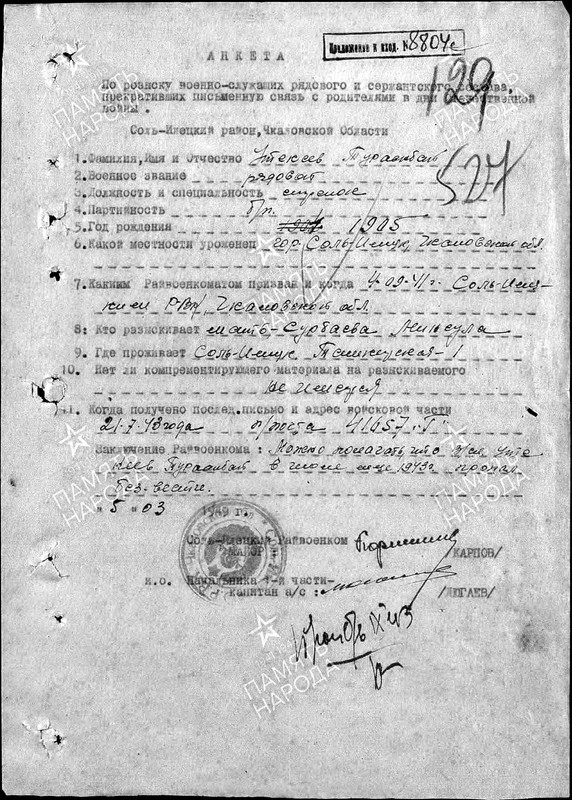 Приложение к вход. №8804с
АНКЕТА
129
По розыску военно-служащих рядового и сержантского состава,
прекративших письменную связь с родителями в дни отечественной
войны.
Соль-Илецкий район, Чкаловской Области
527
1. Фамилия, Имя и Отчество Утекеев Туралыбай
2. Военное звание рядовой
3. Должность и специальность стрелок
4. Партийность б/п.
5. Год рождения 1905
6. Какой местности уроженец гор. Соль-Илецк, Чкаловской обл.
7. Каким Райвоенкоматом призван и когда 4-09-41г. Соль-Илец-
ким РВК, Чкаловской обл.
8: Кто разыскивает мать-Сурбаева
9. Где проживает Соль-Илецк Ташкентская-1
10. Нет ли компрементирующего материала на разыскиваемого
Не имеется
11. Когда получено послед. письмо и адрес войсковой части
21-7-43 года п/почта 41657 "Т"
Заключение Райвоенкома: Можно полагать что
в июле м-це 1943г. пропал
без-вести.
"5" 03 1949 г.
Соль-Илецкий Райвоенком
МАЙОР /КАРПОВ/
и.о. Начальника 1-й части-
капитан а/с: /ЛЮГАЕВ/
ПАМЯТЬ
НАРОДА